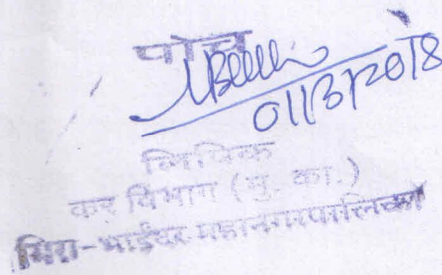 पोच
01/03/2018
लिपिक
कर विभाग (मु. का.)
मिरा-भाईंदर महानगरपालिका